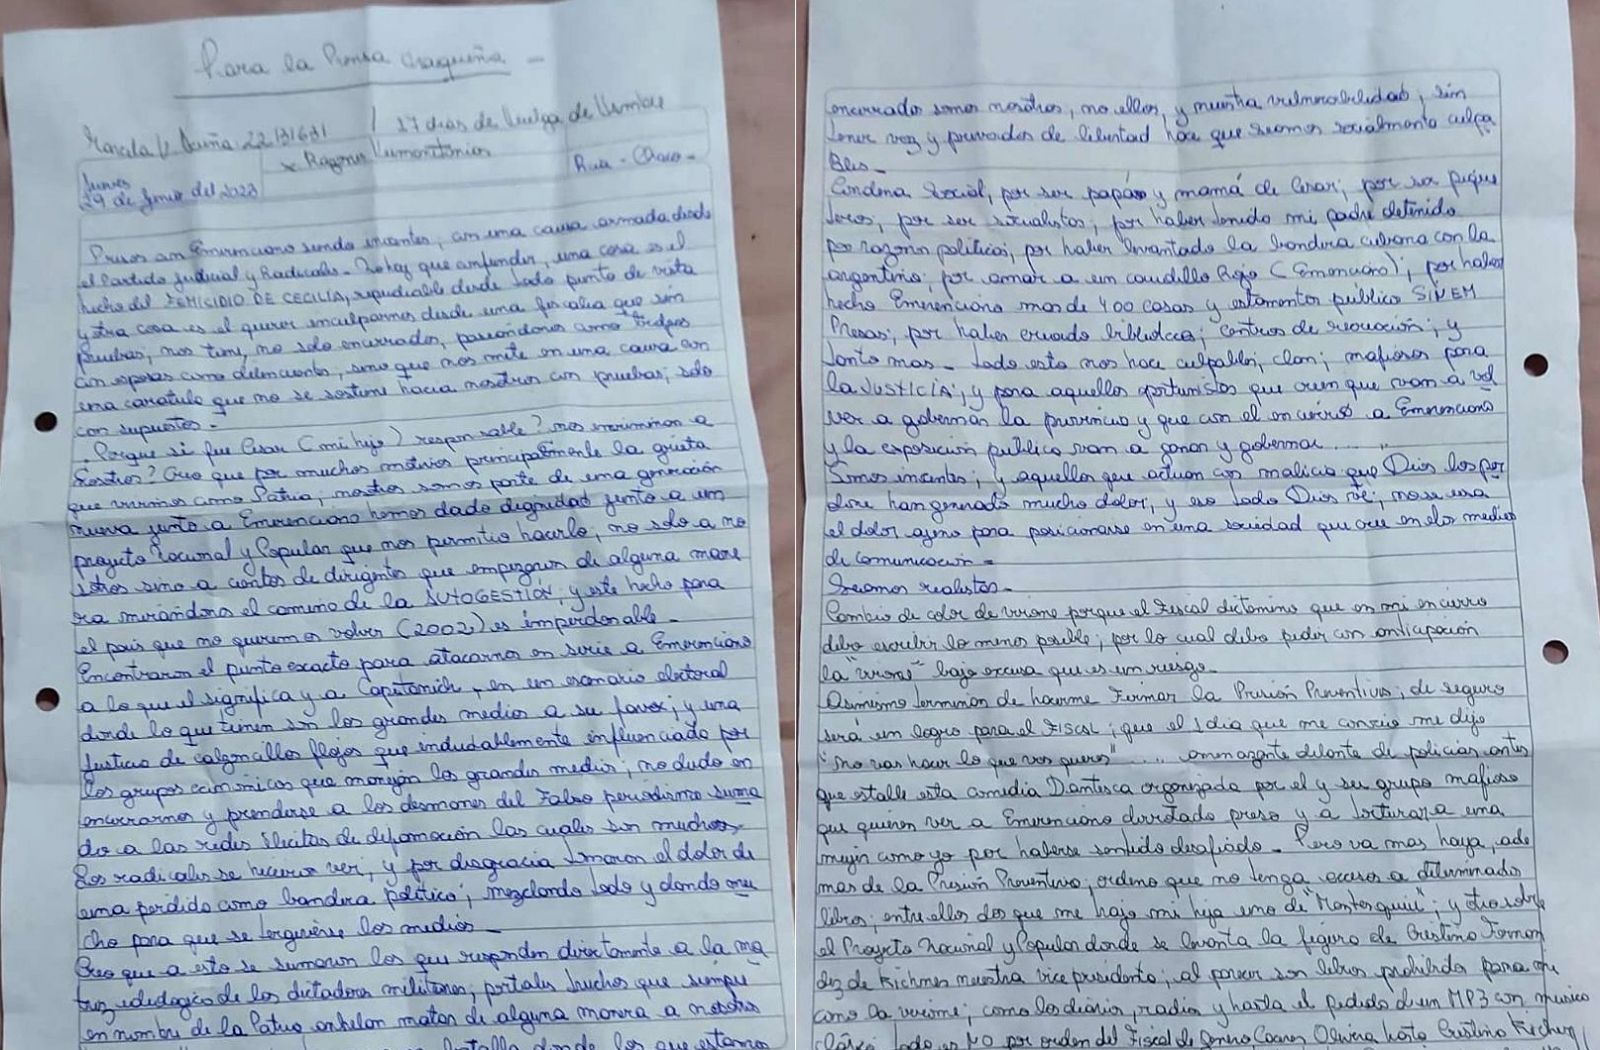 Para la Prensa chaqueña -
Marcela V Acuña 22131631 / 17 días de Huelga de Hambre
x Razones Humanitarias
Rcia - Chaco -
Jueves
29 de Junio del 2023
Presos con Emerenciano siendo inocentes, con una causa armada desde
el Partido Judicial y Radicales. No hay que confundir, una cosa es el
hecho del FEMICIDIO DE CECILIA, repudiable desde todo punto de vista
y otra cosa es el querer inculparnos desde una fiscalia que sin
pruebas, nos tiene, no solo encerrados, paseandonos como
con esposas como delincuentes, sino que nos mete en una causa con
una caratula que no se sostiene hacia nosotros con pruebas; solo
con supuestos -
Porque si fue Cesar (mi hijo) responsable? nos incriminan a
nosotros? Creo que por muchos motivos principalmente la grieta
que vivimos como Patria, nosotros somos parte de una generación
nueva junto a Emerenciano hemos dado dignidad junto a un
proyecto Nacional y Popular que nos permitio hacerlo, no solo a no
sotros sino a cientos de dirigentes que empezaron de alguna mane
ra mirándonos el camino de la AUTOGESTIÓN, y este hecho para
el pais que no queremos volver (2002) es imperdonable -
Encontraron el punto exacto para atacarnos en serie a Emerenciano
a lo que el significa y a Capitanich, en un escenario electoral
donde lo que tienen son los grandes medios a su favor, y una
Justicia de calzoncillos flojos que indudablemente influenciado por
los grupos económicos que manejan los grandes medios, no dudo en
encerrarnos y prenderse a los desmanes del Falso periodismo suma
do a las redes ilicitas de difamación las cuales son muchas,
Los radicales se hicieron ver, y por desgracia tomaron el dolor de
una perdida como bandera politica, mezclando todo y dando mu
cho para que se tergiverse los medios -
Creo que a esto se sumaron los que responden directamente a la ma
triz ideologica de los dictadores militares, portales truchos que siempre
en nombre de la Patria anhelan matar de alguna manera a nosotros
donde los que estamos
encerrados somos nosotros, no ellos, y nuestra vulnerabilidad, sin
tener voz y privados de libertad hace que seamos socialmente culpa
Bles -
Condena Social, por ser papá y mamá de Cesar, por ser pique
teros, por ser socialistas, por haber tenido mi padre detenido
por razones politicas, por haber levantado la bandera cubana con la
argentina, por amar a un caudillo Rojo (Emerenciano), por haber
hecho Emerenciano mas de 400 casas y estamentos público SIN EM
Presas; por haber creado biblioteca; centros de recreación; y
tanto mas - todo esto nos hace culpables, clan; mafiosos para
la JUSTICIA; y para aquellos oportunistas que creen que van a vol
ver a gobernar la provincia y que con el encierro a Emerenciano
y la exposición publica van a ganar y gobernar ......
Somos inocentes; y aquellos que actuan con malicia que Dios los per
done han generado mucho dolor, y eso todo Dios ve; no se usa
el dolor ajeno para posicionarse en una sociedad que cree en los medios
de comunicacion -
Seamos realistas -
Cambio de color de birome porque el Fiscal dictamino que en mi encierro
debo escribir lo menos posible; por lo cual debo pedir con anticipación
la "birome" bajo excusa que es un riesgo -
Asimismo terminan de hacerme Firmar la Prision Preventiva, de seguro
será un logro para el FISCAL, que el 1 dia que me conocio me dijo
"no vas hacer lo que vos queres" .... amenazante delante de policias antes
que estalle esta comedia Dantesca organizada por el y su grupo mafioso
que quieren ver a Emerenciano derrotado preso y a torturar a una
mujer como yo por haberse sentido desafiado - Pero va mas haya, ade
mas de la Prision Preventiva, ordeno que no tenga acceso a determinados
libros; entre ellos dos que me trajo mi hija uno de "Montesquiu"; y otro sobre
el Proyecto Nacional y Popular donde se levanta la figura de Cristina Fernan
dez de Kichner nuestra vice presidenta; al parecer son libros prohibidos para mi
como la birome, como los diarios, radio y hasta el pedido de un MP3 con musica
todo es NO por orden del Fiscal de Genero Caceres Olivera hasta Cristina Kichner